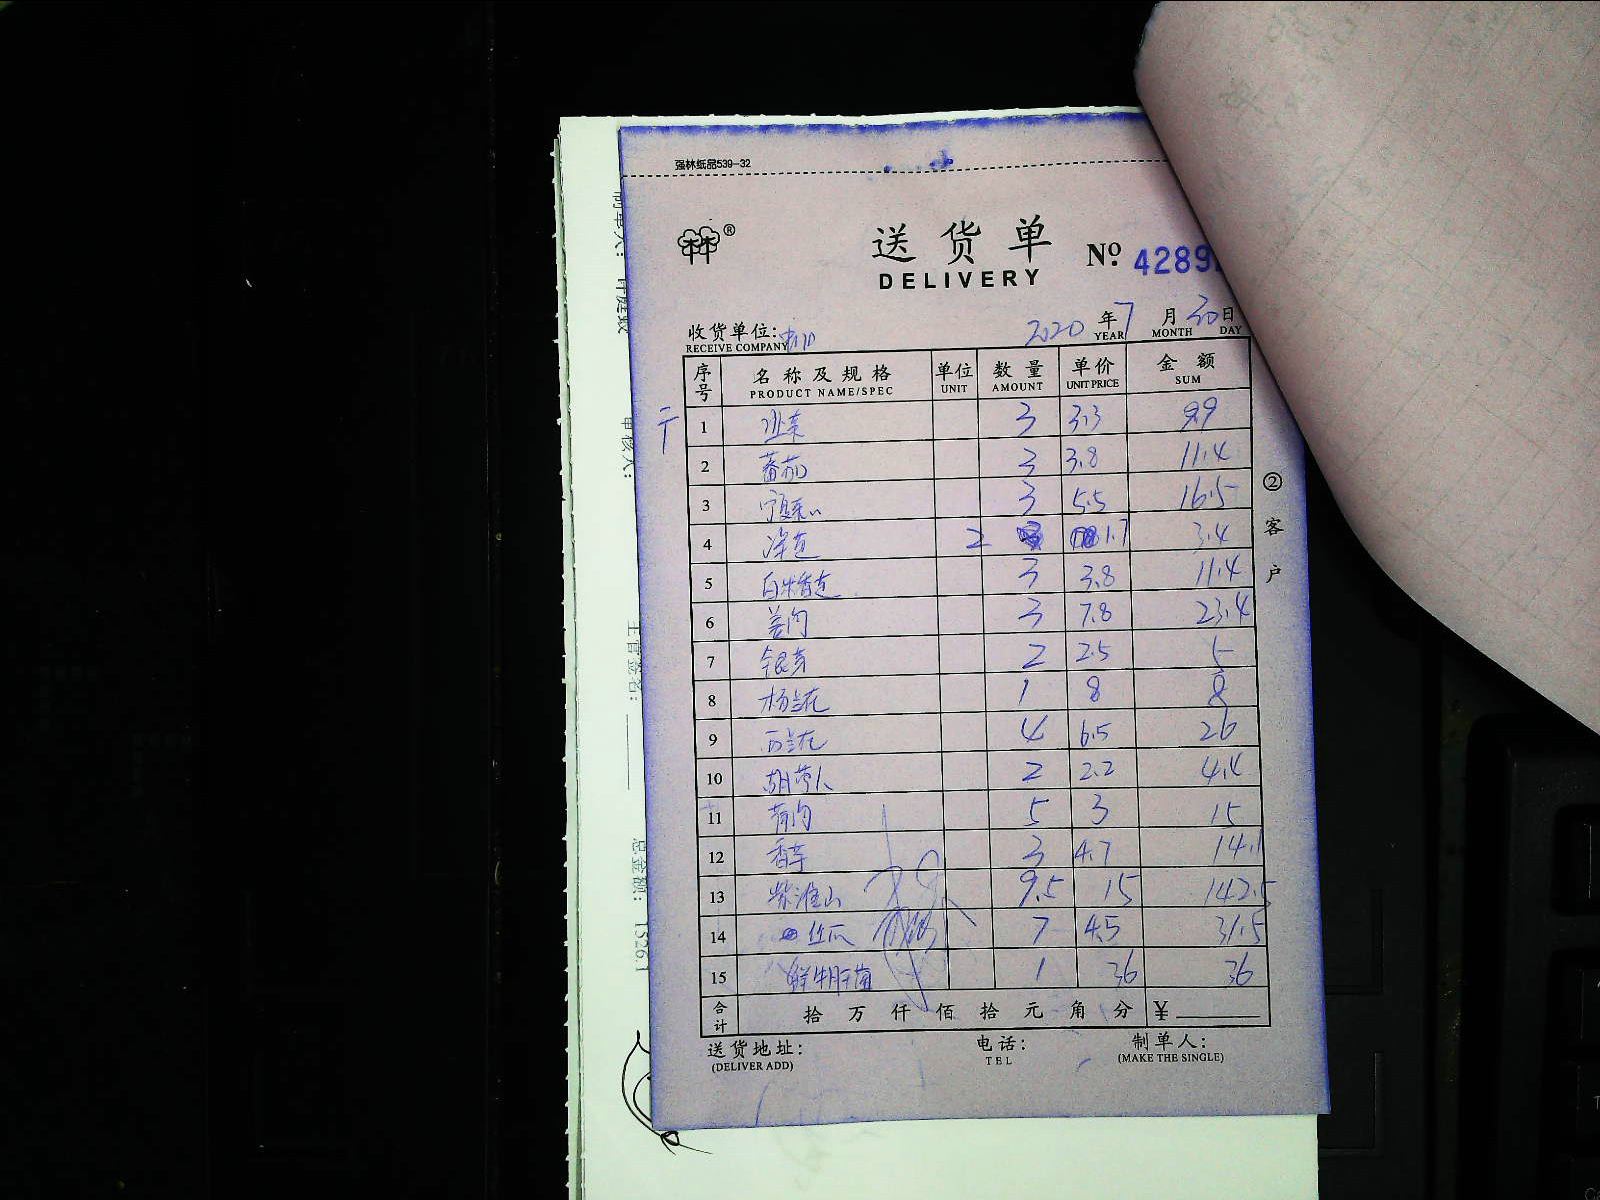 强林纸品539-32
送货单
DELIVERY
№ 4289
收货单位:
RECEIVE COMPANY
2020 年 7 月 30 日
YEAR MONTH DAY
序号 名称及规格 单位 数量 单价 金额
PRODUCT NAME/SPEC UNIT AMOUNT UNIT PRICE SUM
1 3 3.3 9.9
2 蕃茄 3 3.8 11.4
3 3 5.5 16.5
4 2 1.7 3.4
5 3 3.8 11.4
6 姜肉 3 7.8 23.4
7 银芽 2 2.5 5
8 1 8 8
9 西兰花 4 6.5 26
10 2 2.2 4.4
11 5 3 15
12 香芋 3 4.7 14.1
13 紫淮山 9.5 15 142.5
14 丝瓜 7 4.5 31.5
15 鲜牛肝菌 1 36 36
合计 拾 万 仟 佰 拾 元 角 分 ¥
送货地址:
(DELIVER ADD)
电话:
TEL
制单人:
(MAKE THE SINGLE)
② 客户
审核人:
主管签名:
总金额: 1526.1